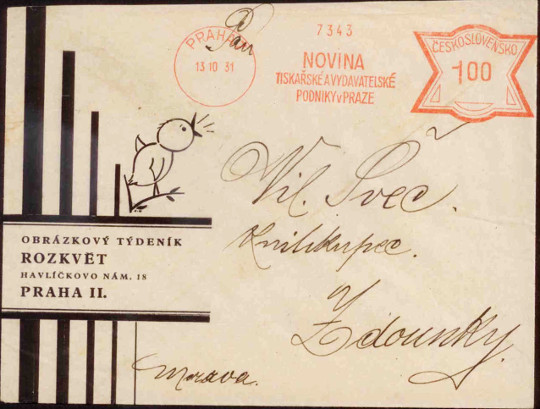 Pan
PRAHA
13 10 31
7343
NOVINA
TISKAŘSKÉ A VYDAVATELSKÉ
PODNIKY V PRAZE
ČESKOSLOVENSKO
100
Vil. Švec.
Knihkupec.
Zdounky.
Morava.
OBRÁZKOVÝ TÝDENÍK
ROZKVĚT
HAVLÍČKOVO NÁM. 18
PRAHA II.